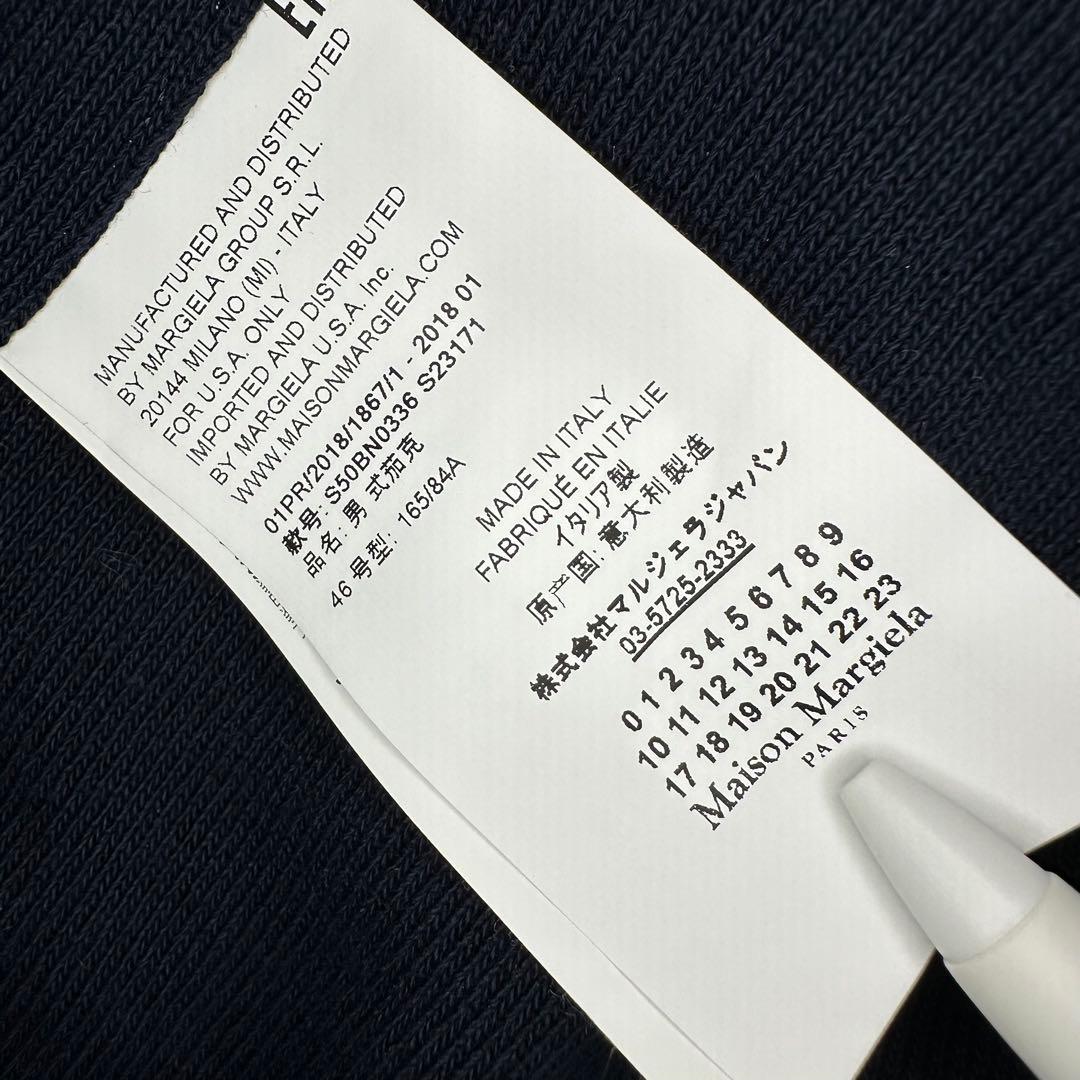 MANUFACTURED AND DISTRIBUTED
BY MARGIELA GROUP S.R.L.
20144 MILANO (MI) - ITALY
FOR U.S.A. ONLY
IMPORTED AND DISTRIBUTED
BY MARGIELA U.S.A. Inc.
WWW.MAISONMARGIELA.COM
01PR/2018/1867/1 - 2018 01
款号: S50BN0336 S23171
品名: 男 式茄克
46 号型: 165/84A
MADE IN ITALY
FABRIQUÉ EN ITALIE
イタリア製
原产国: 意大利製造
株式会社マルジェラジャパン
03-5725-2333
0 1 2 3 4 5 6 7 8 9
10 11 12 13 14 15 16
17 18 19 20 21 22 23
Maison Margiela
PARIS